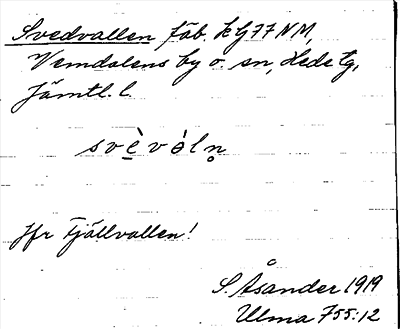 Svedvallen fäb. kG77NM,
Vemdalens by o. sn, Hede tg,
Jämtl. l.
svèvàln̥
Jfr Fjällvallen!
S. Åsander 1919
Ulma 755:12